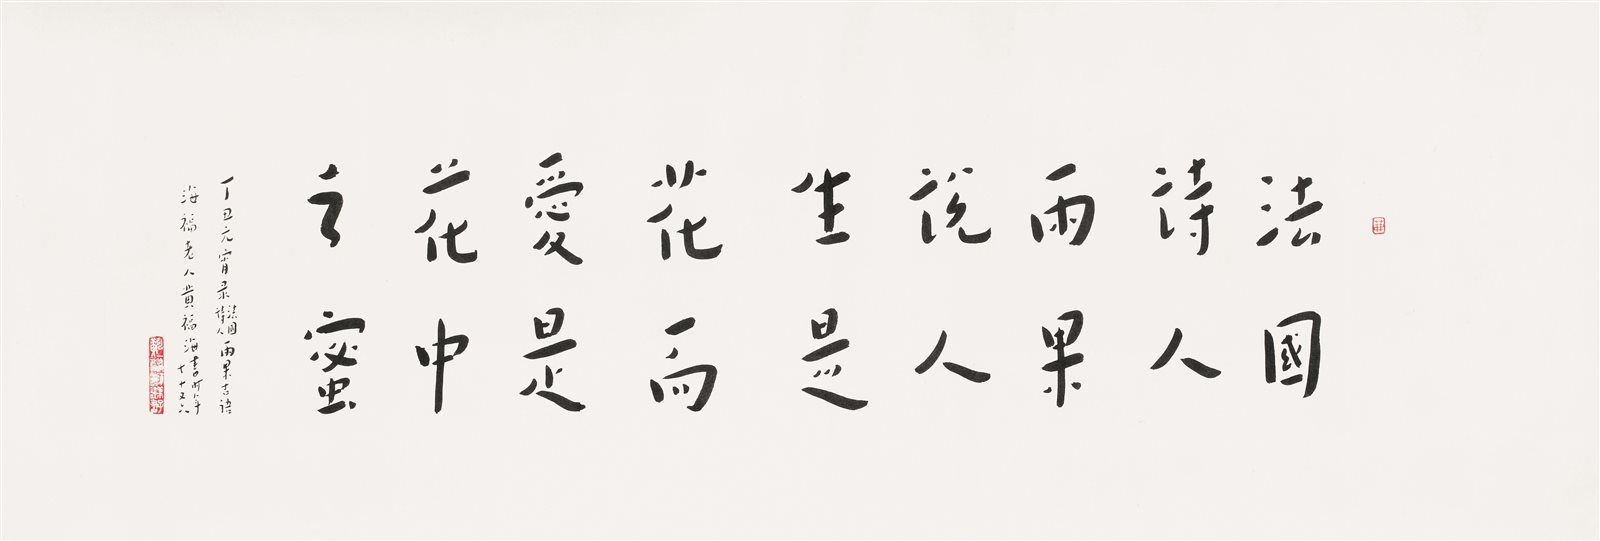 法國
詩人
雨果
說人
生是
花而
愛是
花中
之蜜
丁丑元宵录法國詩人雨果語
海福老人黄福海書时年七十又六